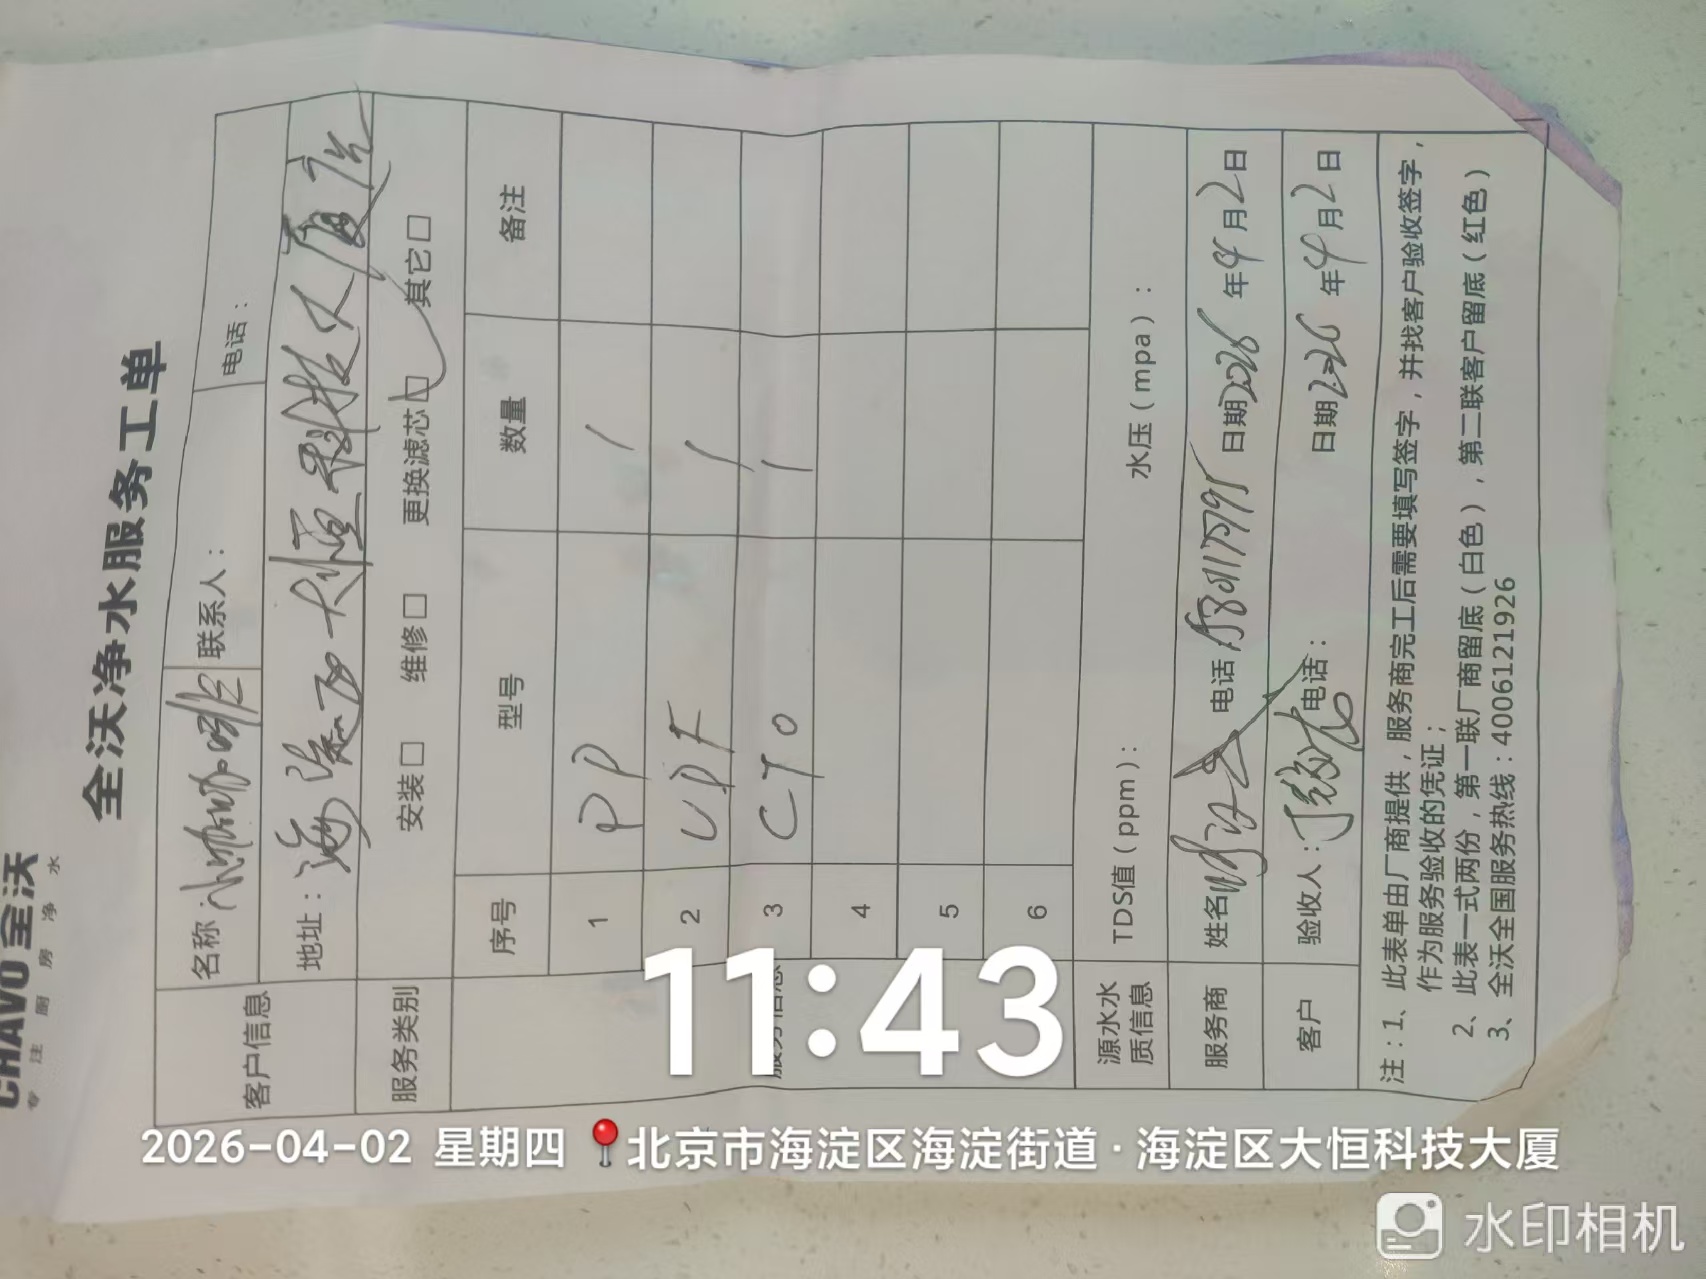 CHAVO 全沃
专注厨房净水
全沃净水服务工单
客户信息 名称: 咖啡 联系人: 电话:
地址: 海淀区大恒科技大厦
服务类别 安装□ 维修□ 更换滤芯□ 其它□
服务信息 序号 型号 数量 备注
1 PP 1
2 UDF 1
3 CTO 1
4
5
6
源水水质信息 TDS值(ppm): 水压(mpa):
服务商 姓名 电话 日期2026年4月2日
客户 验收人: 电话: 日期2026年4月2日
注:1、此表单由厂商提供,服务商完工后需要填写签字,并找客户验收签字,
作为服务验收的凭证;
2、此表一式两份,第一联厂商留底(白色),第二联客户留底(红色)
3、全沃全国服务热线:4006121926
11:43
2026-04-02 星期四 北京市海淀区海淀街道·海淀区大恒科技大厦
水印相机